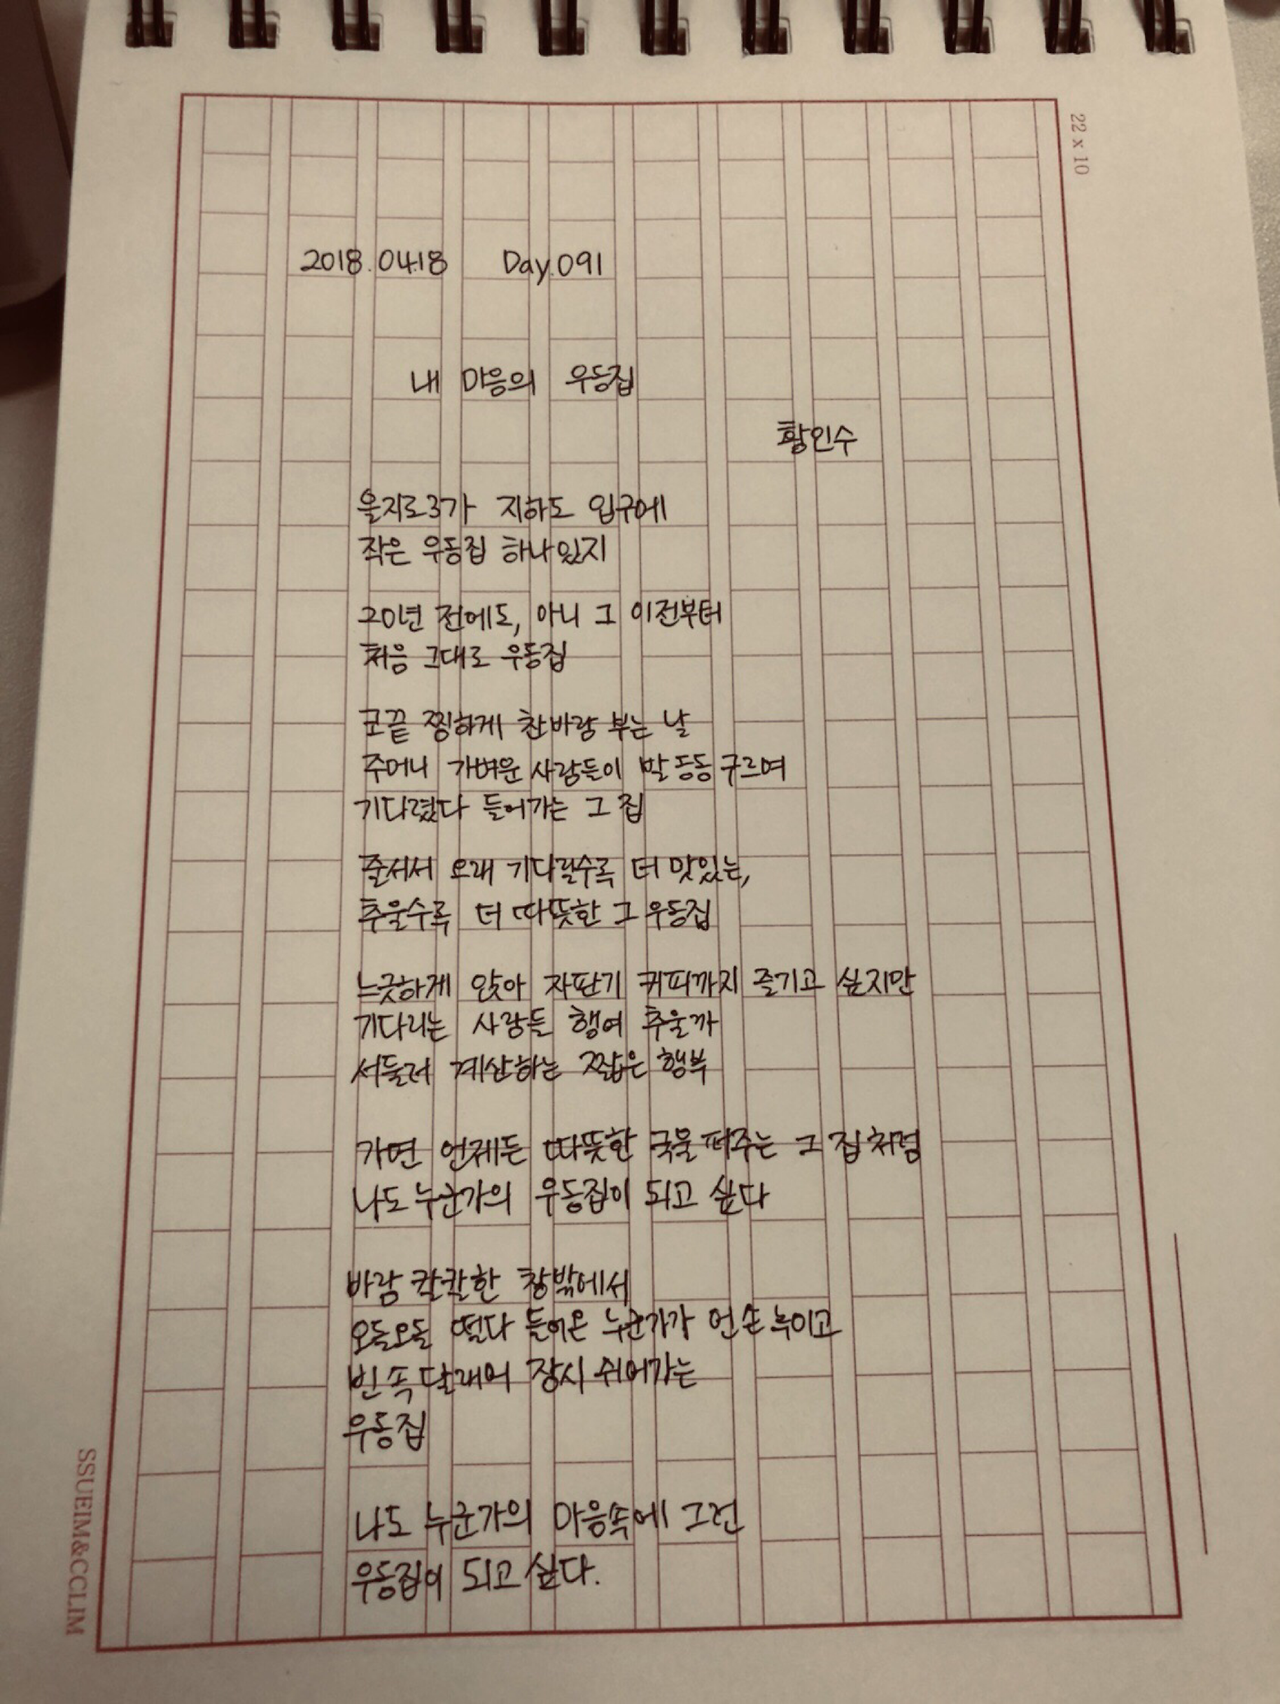 22 x 10
2018.04.18 Day.091
내 마음의 우동집
황인수
을지로3가 지하도 입구에
작은 우동집 하나 있지
20년 전에도, 아니 그 이전부터
처음 그대로 우동집
코끝 찡하게 찬바람 부는 날
주머니 가벼운 사람들이 발 동동 구르며
기다렸다 들어가는 그 집
줄서서 오래 기다릴수록 더 맛있는,
추울수록 더 따뜻한 그 우동집
느긋하게 앉아 자판기 커피까지 즐기고 싶지만
기다리는 사람들 행여 추울까
서둘러 계산하는 짧은 행복
가면 언제든 따뜻한 국물 떠주는 그 집처럼
나도 누군가의 우동집이 되고 싶다
바람 칼칼한 창밖에서
오돌오돌 떨다 들어온 누군가가 언 손 녹이고
빈 속 달래며 잠시 쉬어가는
우동집
나도 누군가의 마음속에 그런
우동집이 되고 싶다.
SSUEIM&CCLIM